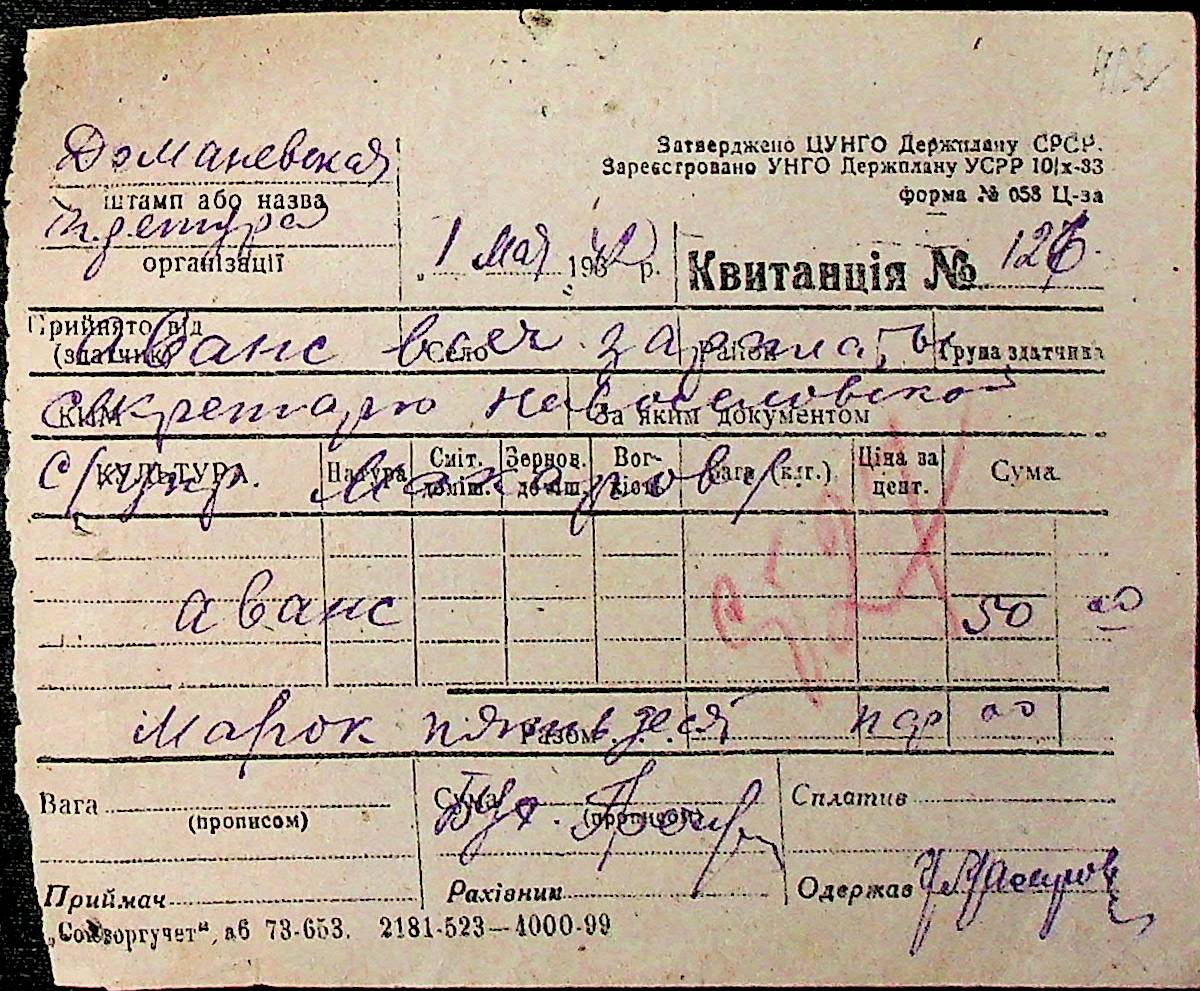 Доманевская
штамп або назва
претура
організації
Затверджено ЦУНГО Держплану СРСР.
Зареєстровано УНГО Держплану УСРР 10/х-33
форма № 058 Ц-за
„1 мая 1942 р.
Квитанція № 126.
Прийнято від
(здатчик) Село Район Група здатчика
аванс всч зарплаты
Ким За яким документом
секретарю новоселовской
КУЛЬТУРА. Натура Сміт. доміш. Зернов. доміш. Вогкість Вага (клг.) Ціна за цент. Сума
с/упр. Макарову.
аванс 50 00
Разом
Марок пятьдеся 00
Вага (прописом) Сума (прописом) Сплатив
Бух.
Приймач Рахівник Одержав
„Союзоргучет“, аб 73-653. 2181-523—4000-99